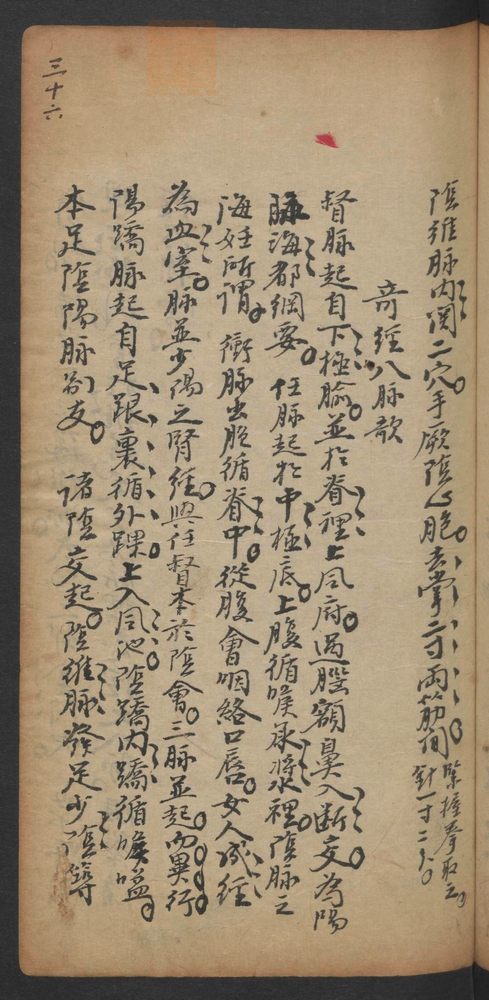 陰維脉内関二穴。手厥陰心胞。去掌二寸兩筋间。緊握拳取之。針一寸二分。
竒經八脉歌
督脉起自下極腧。並扵脊裡上風府。過腦額鼻入断交。為陽
脉海都綱要。任脉起扵中極底。上腹循喉承漿裡。陰脉之
海妊所謂。衝脉出胞循脊中。從腹會咽絡口唇。女人成經
為血室。脉並少陽之腎經。與任督本於陰會。三脉並起而異行。
陽蹻脉起自足跟裏。循外踝上入风池。陰蹻内蹻循喉嗌。
本足陰陽脉别支。诸陰交起陰維脉。發足少陰築
三十六